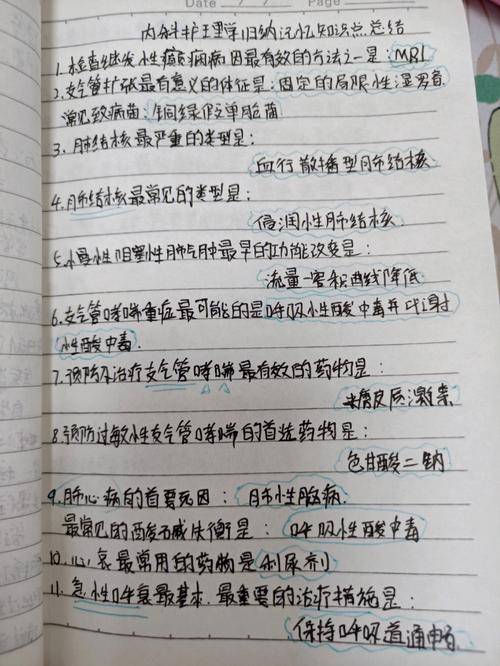 Date / /
Page
内科护理学归纳记忆知识点总结
1.检查继发性癫痫病因最有效的方法之一是:MRI
2.支气管扩张最有意义的体征是:固定的局限性湿罗音
常见致病菌:铜绿假单胞菌
3.肺结核最严重的类型是:
血行散播型肺结核
4.肺结核最常见的类型是:
侵润性肺结核.
5.慢性阻塞性肺气肿最早的功能改变是:
流量一容积曲线降低
6.支气管哮喘重症最可能的是呼吸性酸中毒并代谢
性酸中毒.
7.预防和治疗支气管哮喘最有效的药物是:
糖皮质激素
8.预防过敏性支气管哮喘的首选药物是:
色甘酸二钠
9.肺心病的首要死因:肺性脑病.
最常见的酸碱失衡是:呼吸性酸中毒
10.心衰最常用的药物是利尿剂
11.急性呼衰最基本.最重要的治疗措施是:
保持呼吸道通畅.